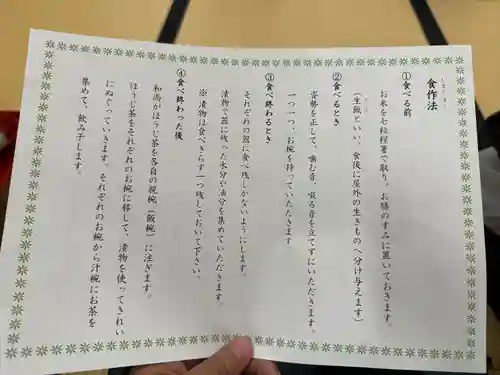 食作法
①食べる前
お米を七粒程箸で取り、お膳のすみに置いておきます。
（生飯といい、食後に屋外の生きものへ分け与えます）
②食べるとき
姿勢を正して、噛む音、啜る音を立てずにいただきます。
一つ一つ、お椀を持っていただきます
③食べ終わるとき
それぞれの器に食べ残しかないようにします。
漬物で器に残った水分や油分を集めていただきます。
※漬物は食べきらず一つ残しておいて下さい。
④食べ終わった後
和尚がほうじ茶を各自の親椀（飯椀）に注ぎます。
ほうじ茶をそれぞれのお椀に移して、漬物を使ってきれい
にぬぐっていきます。それぞれのお椀から汁椀にお茶を
集めて、飲み干します。